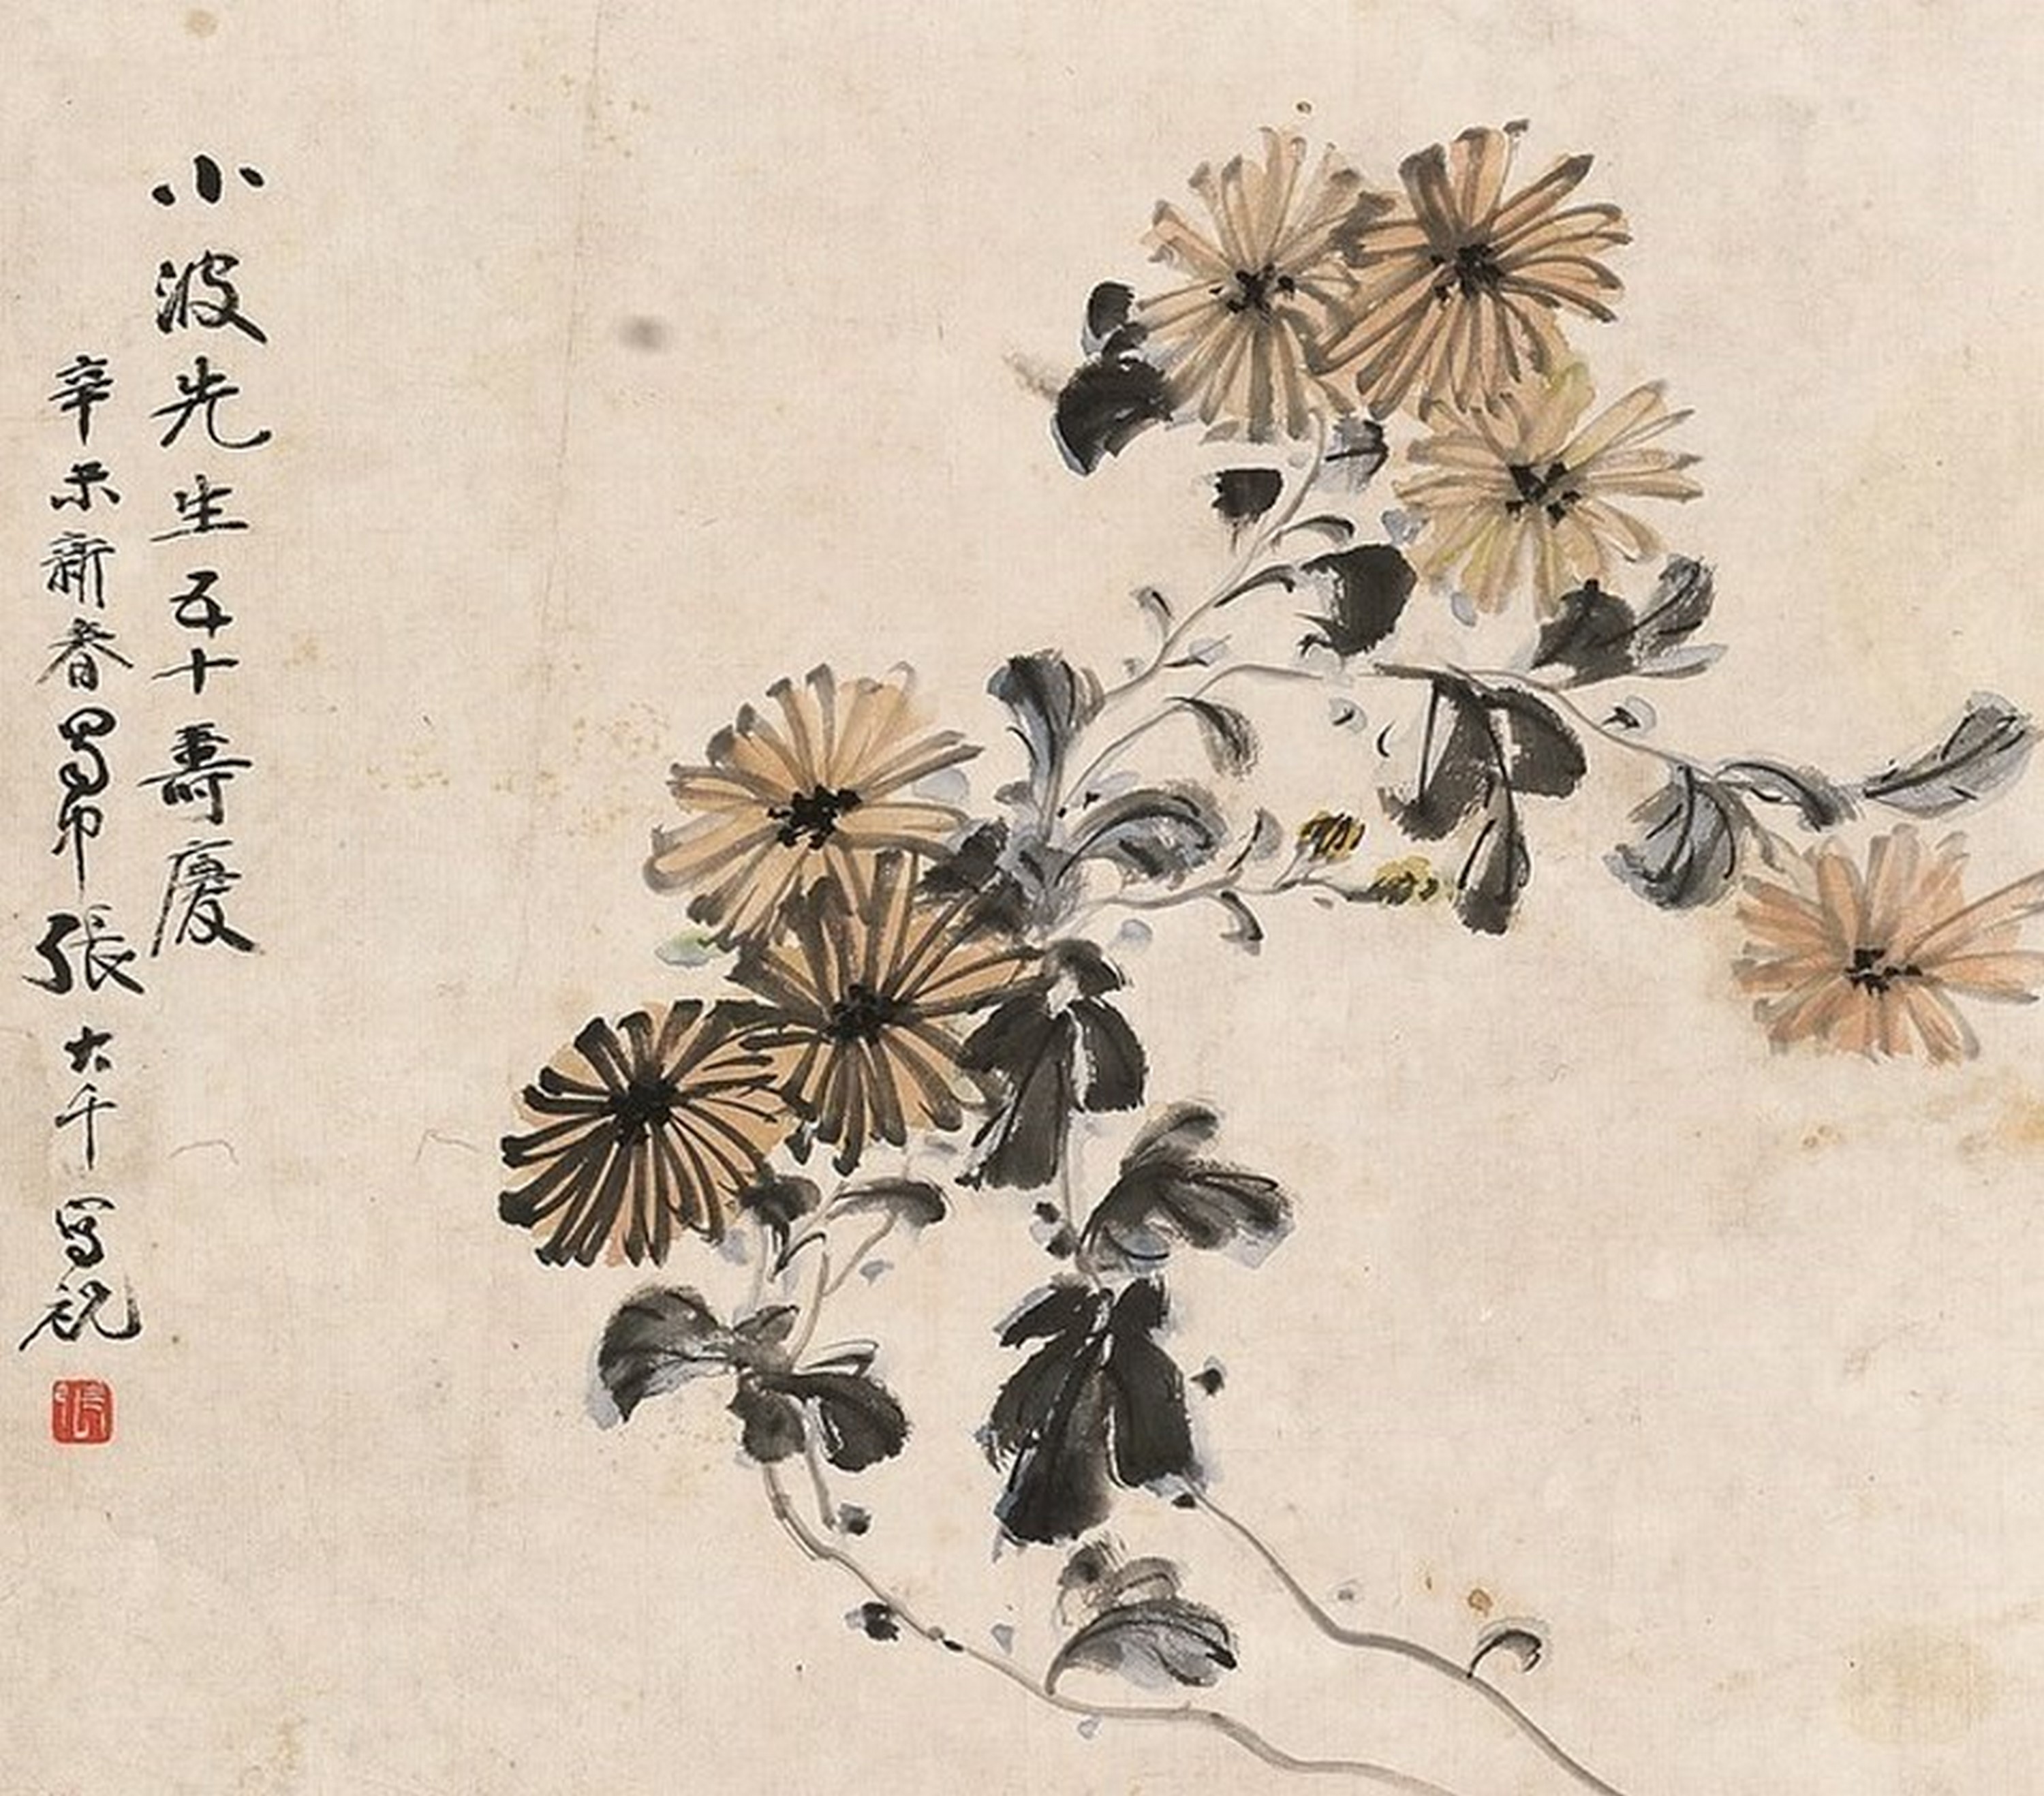 小波先生五十壽慶
辛未新春蜀郡張大千寫祝
張